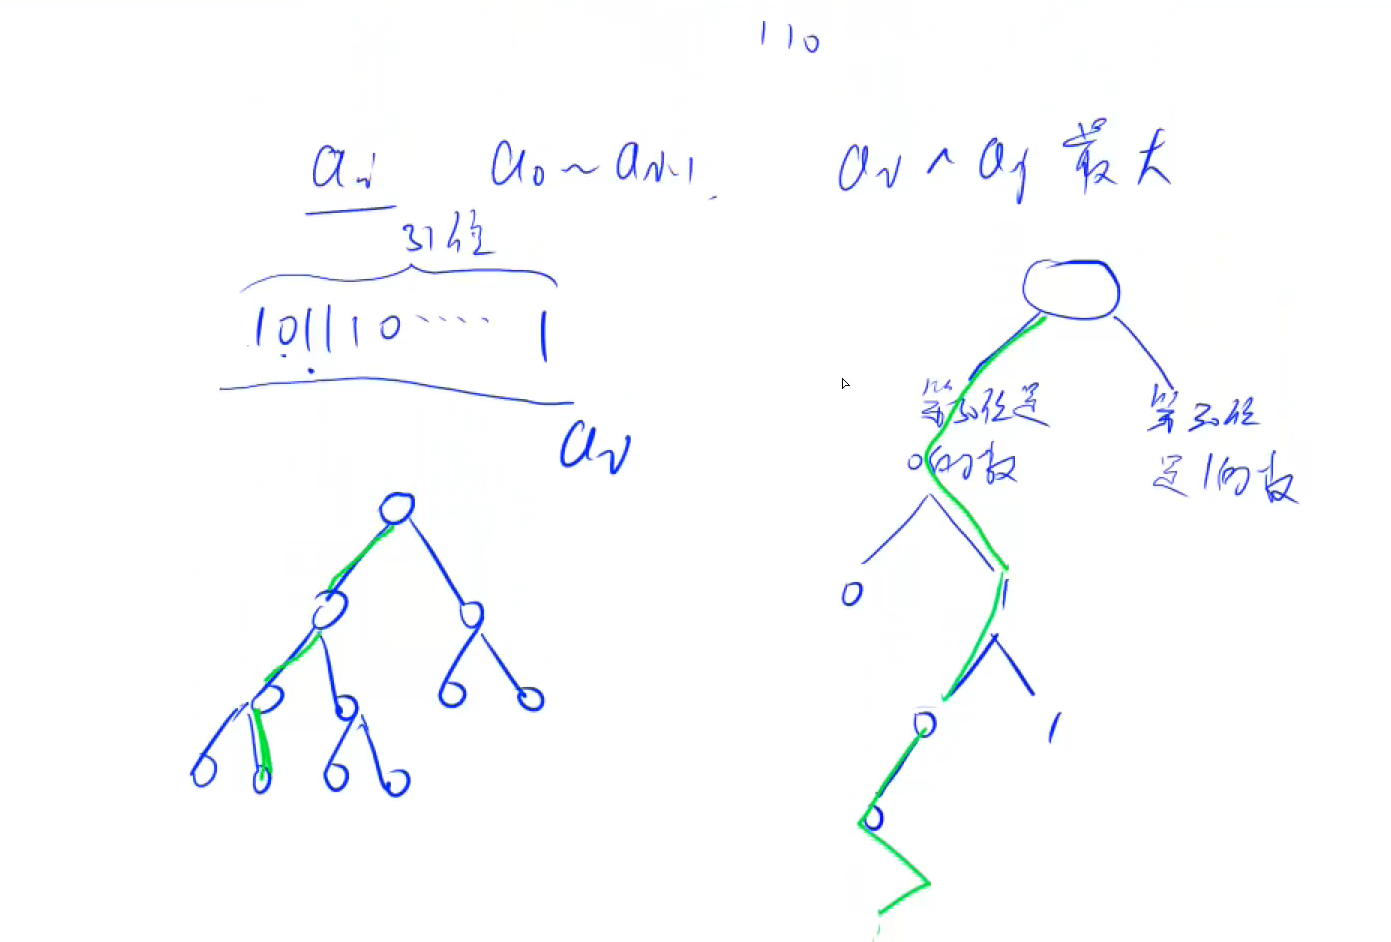 110
aᵢ a₀ ~ aᵢ₋₁ aᵢ ^ aⱼ 最大
31位
101110····· 1
aᵢ
第30位是
0的数
第30位
是1的数
0 1
0 1
0